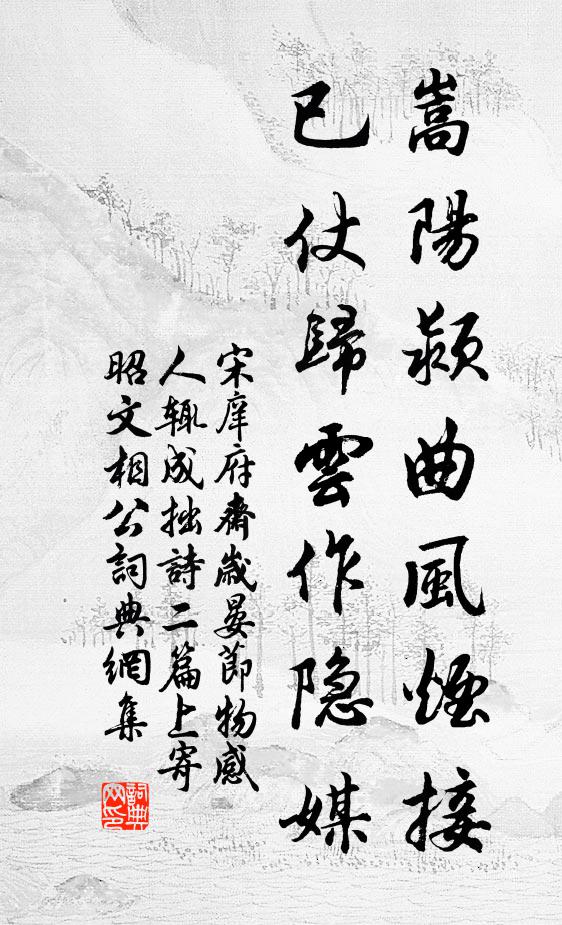 嵩陽潁曲風煙接
已仗歸雲作隐媒
宋庠府齋歲晏節物感
人辄成拙詩二篇上寄
昭文相公詞典網集
詞典网印